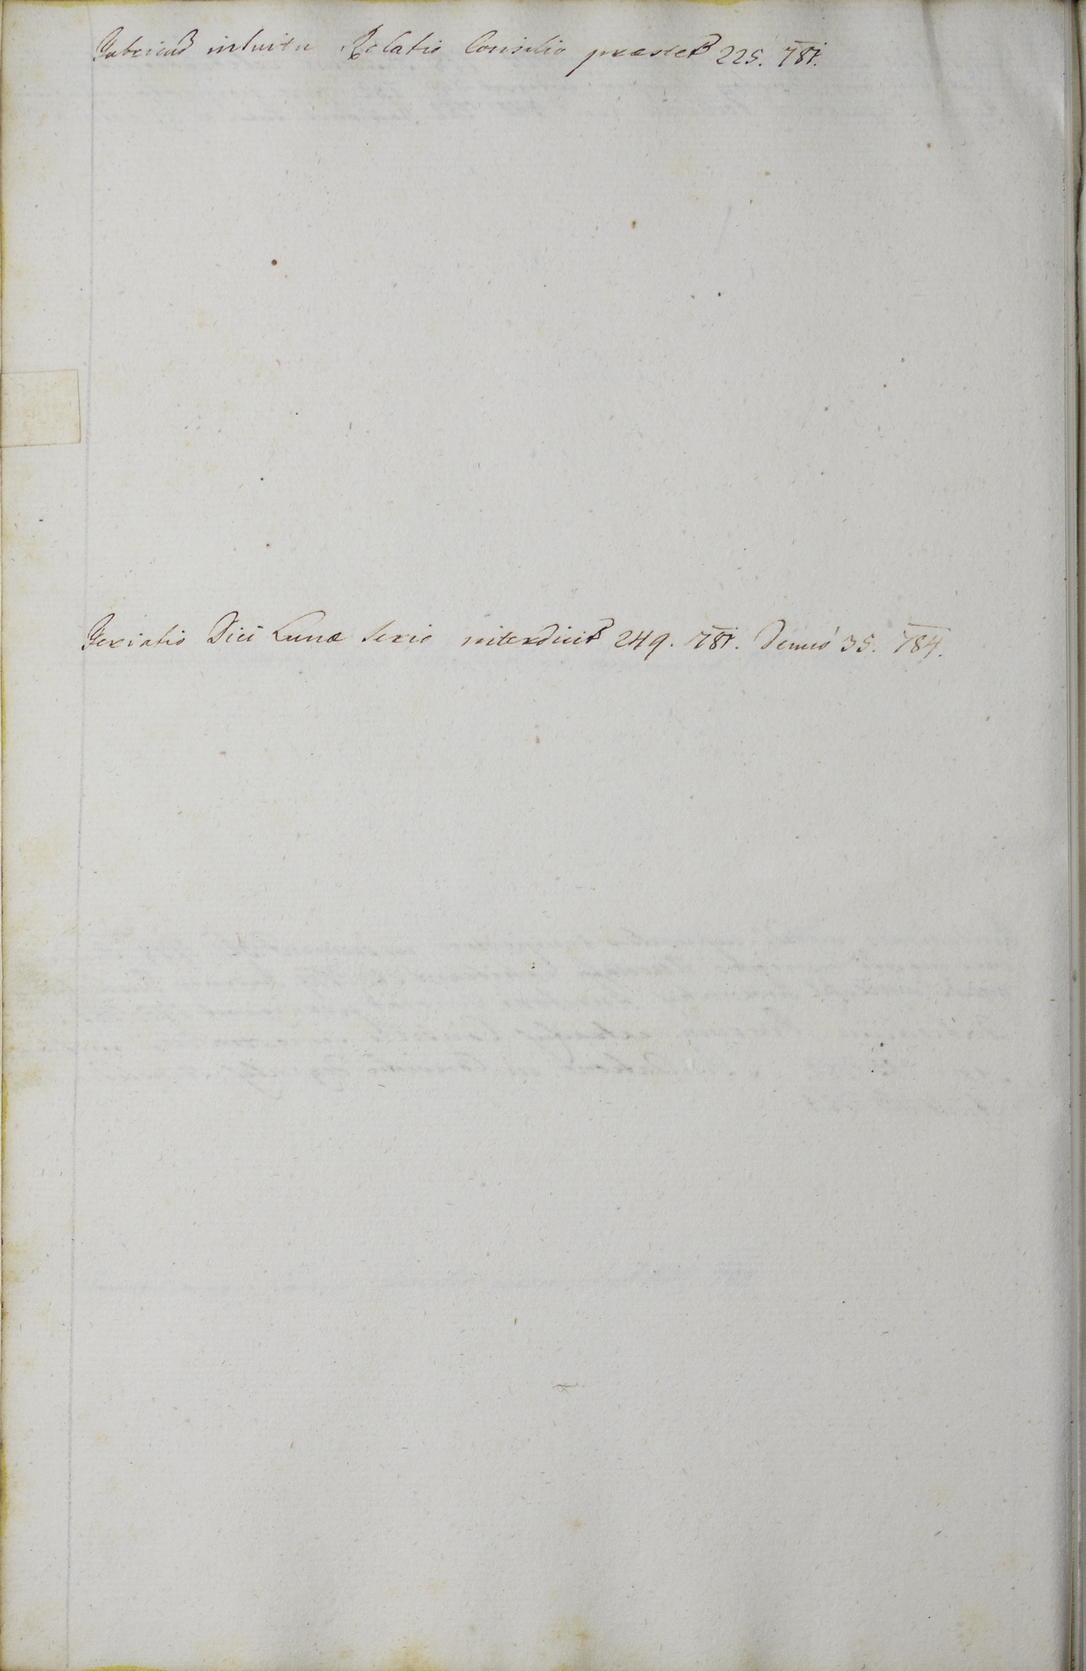 Fabricarū intuitu Relatio Consilio praestetr 225. 781.
Feriatio Diei Lunae serio interdicitr 249. 781. Denuo 35. 784.